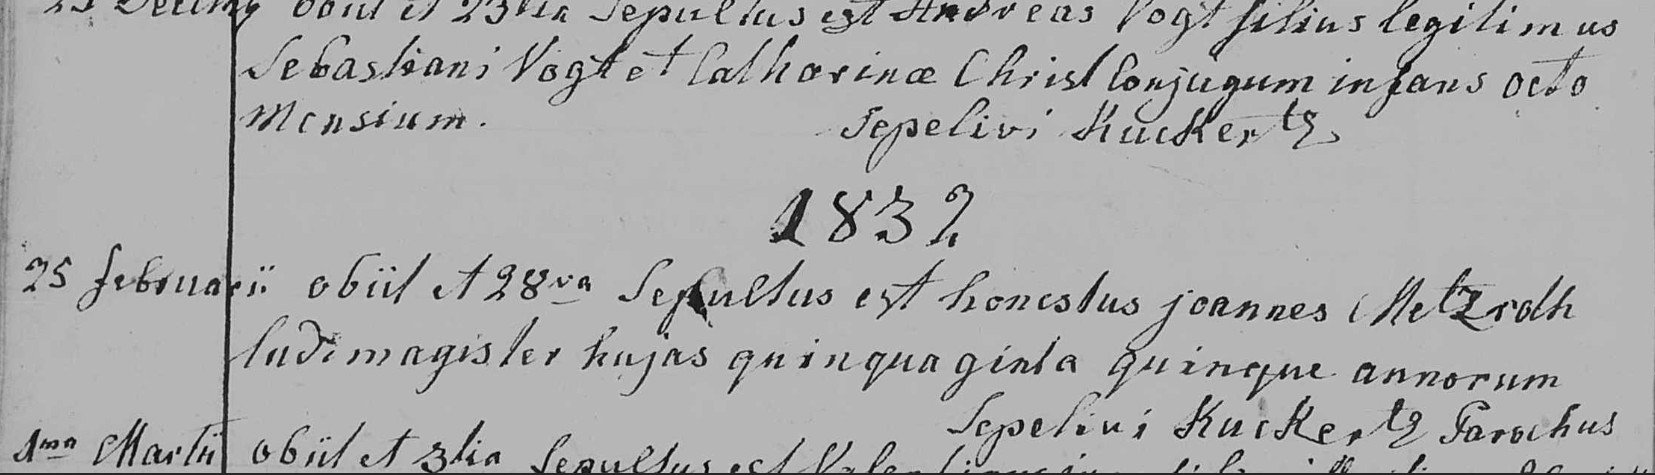 obiit et 23tia Sepultus est Andreas Vogt filius legitimus
Sebastiani Vogt et Catharinæ Christ Conjugum infans octo
Mensium. Sepelivi Kuckertz
1832
25 februarii obiit et 28va Sepultus est honestus joannes Metzroth
ludimagister hujas quinquaginta quinque annorum
Sepelivi Kuckertz Parochus
1ma Martii obiit et 3tia Sepultus est